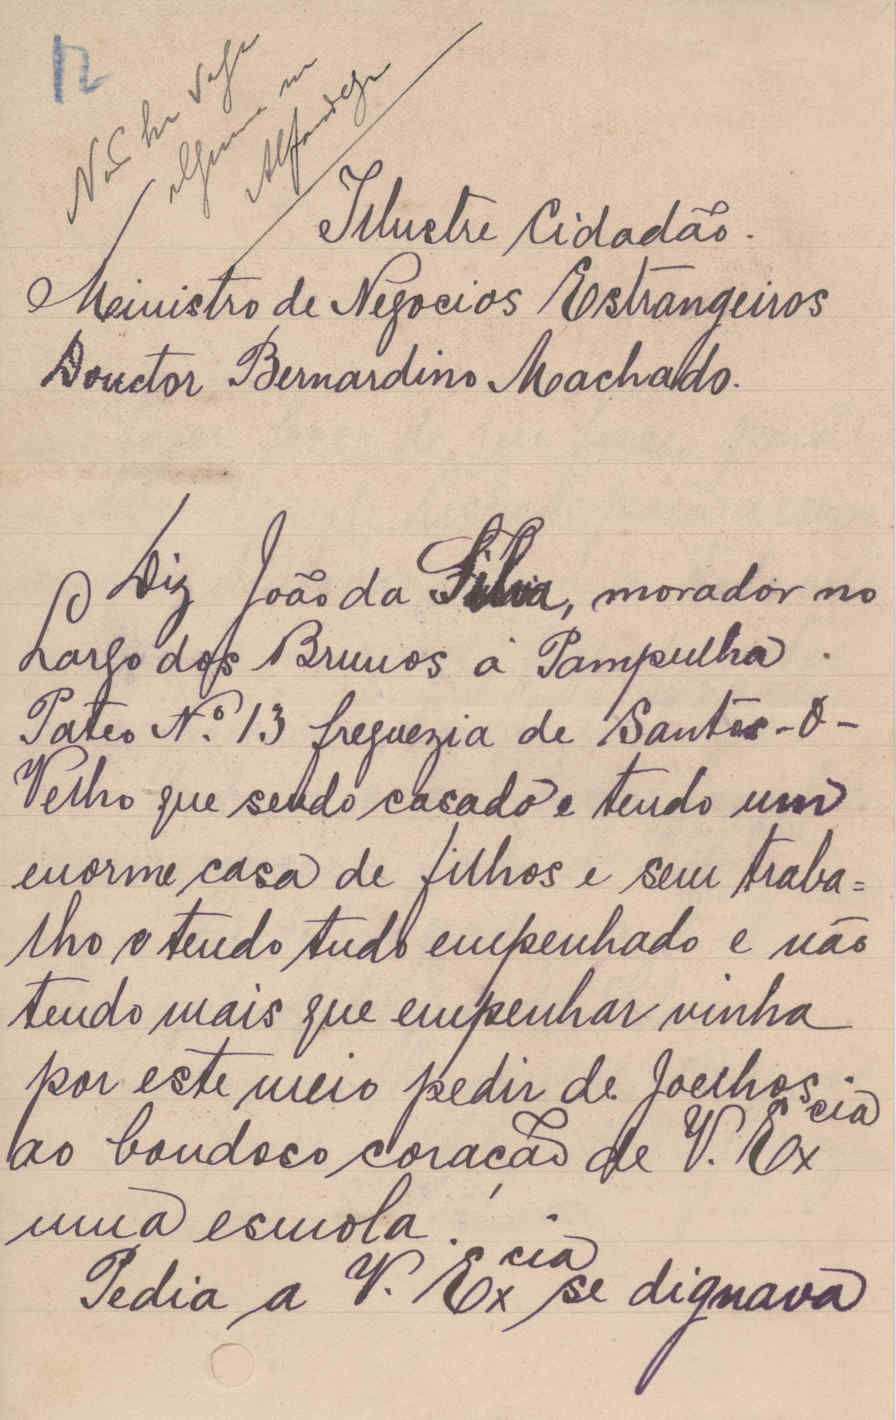 R
Não ha vaga
alguma na
Alfandega
Illustre Cidadão.
Ministro de Negocios Estrangeiros
Douctor Bernardino Machado.
Diz João da Silva, morador no
Largo dos Brunos á Pampulha.
Pateo N.º 13 freguezia de Santos-O-
Velho que sendo casado e tendo um
enorme casa de filhos e sem traba=
lho e tendo tudo empenhado e não
tendo mais que empenhar vinha
por este meio pedir de Joelhos
ao bondoso coração de V. Excia
uma esmola.
Pedia a V. Excia se dignava